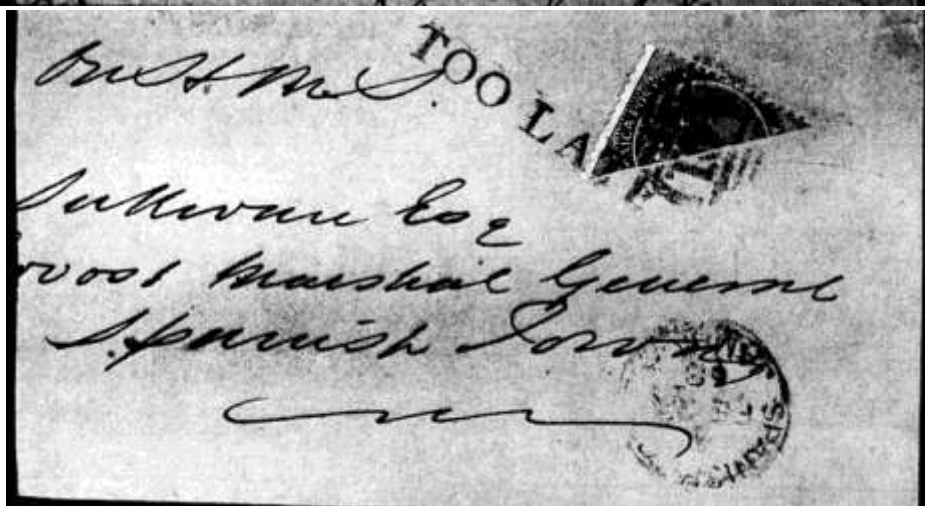 On H. M. S.
TOO LA
Sullivan Esq
rovost Marshal General
Spanish Town
SPANISH